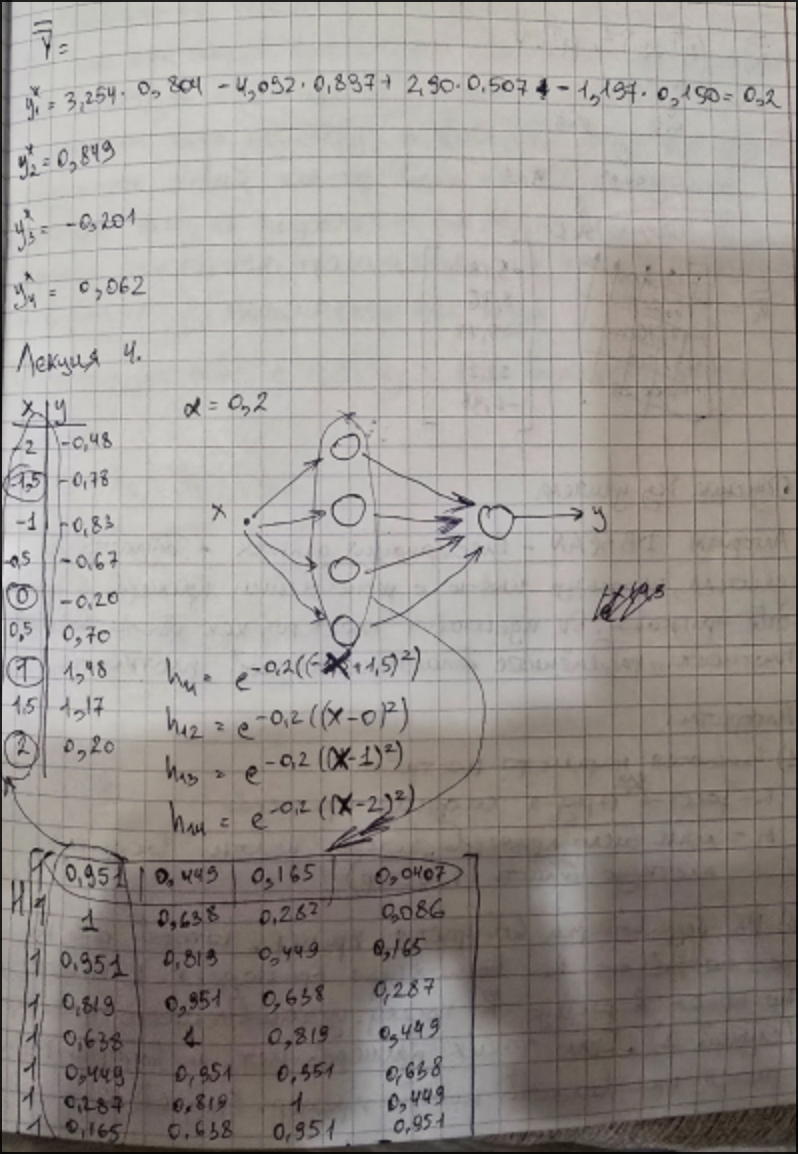 Y =
y₁* = 3,254 · 0,804 - 4,092 · 0,897 + 2,90 · 0,507 - 1,197 · 0,190 = 0,2
y₂* = 0,849
y₃* = -0,201
y₄* = 0,062
Лекция 4.
x y α = 0,2
-2 -0,48
-1,5 -0,78
-1 -0,83
x y
-0,5 -0,67
0 -0,20
0,5 0,70
1 1,48
1,5 1,17
2 0,20
h₁₁ = e^-0,2((x+1,5)²)
h₁₂ = e^-0,2((x-0)²)
h₁₃ = e^-0,2((x-1)²)
h₁₄ = e^-0,2((x-2)²)
H
1 0,951 0,449 0,165 0,0407
1 1 0,638 0,287 0,086
1 0,951 0,819 0,449 0,165
1 0,819 0,951 0,638 0,287
1 0,638 1 0,819 0,449
1 0,449 0,951 0,951 0,638
1 0,287 0,819 1 0,449
1 0,165 0,638 0,951 0,951